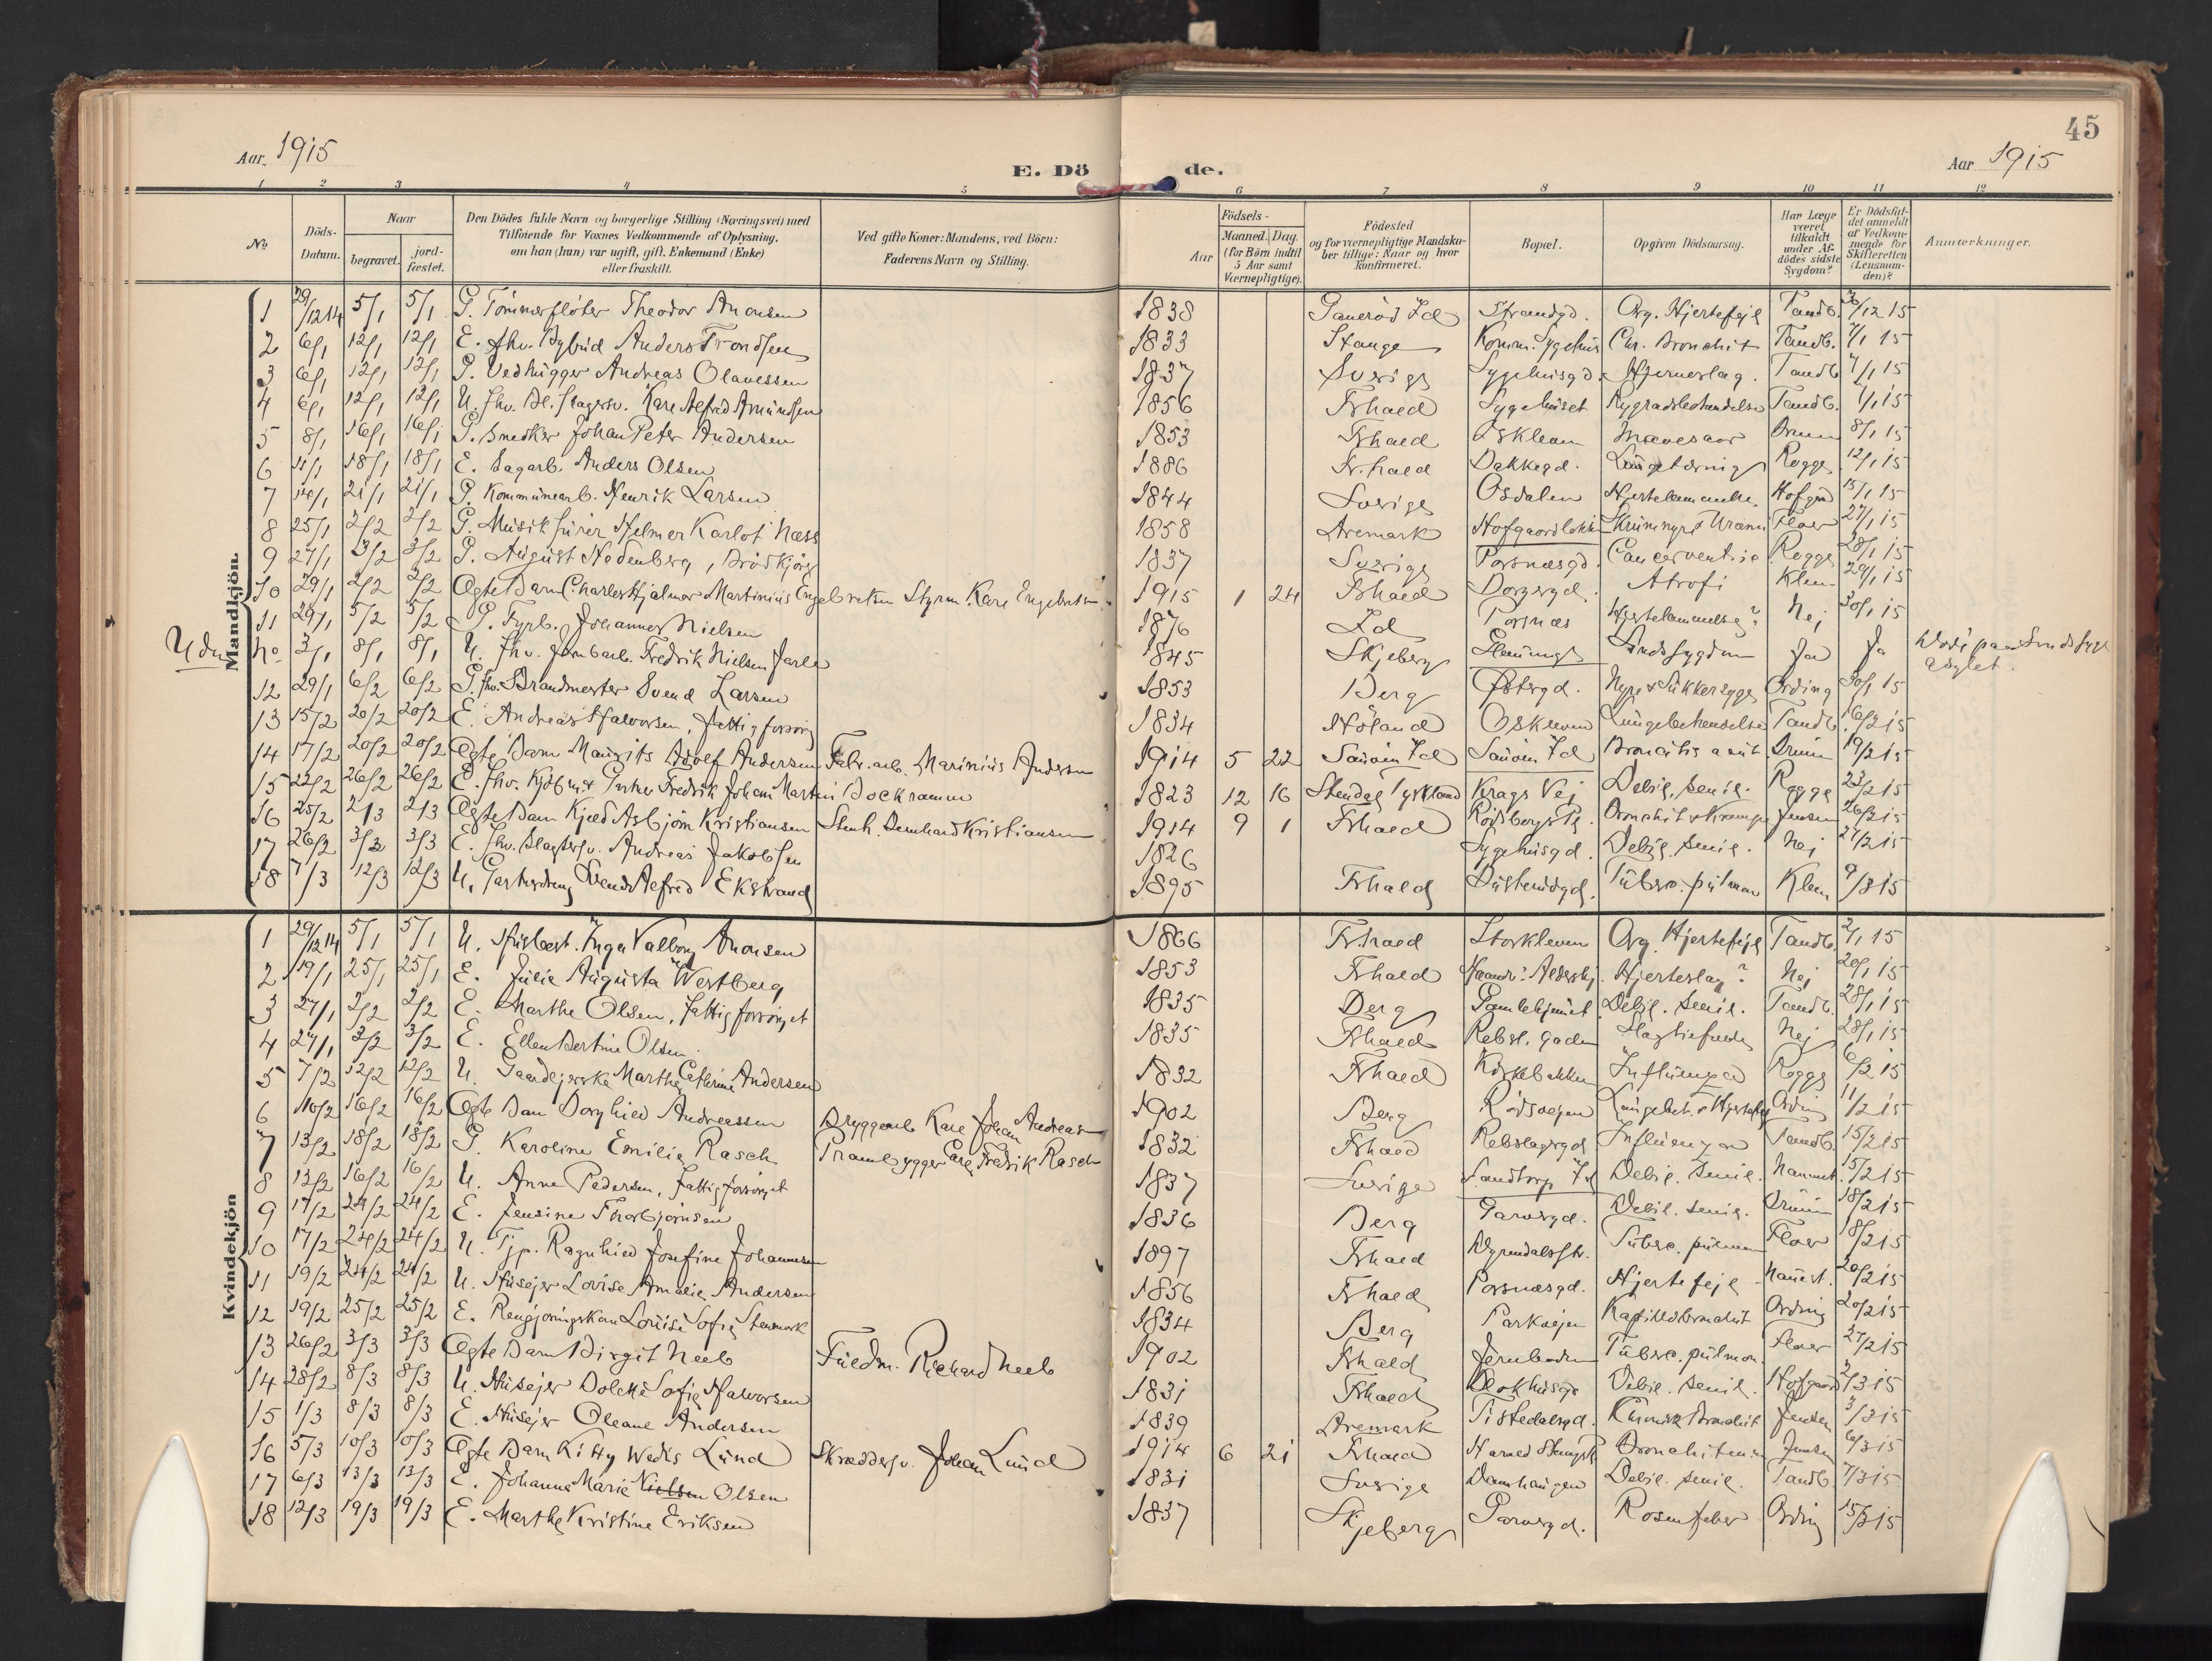 45
Aar 1915
E. Dö
de.
Aar 1915
1 2 3 4 5 6 7 8 9 10 11 12
No.
Döds-Datum.
Naar
begravet.
jord-fæstet.
Den Dödes fulde Navn og borgerlige Stilling (Næringsvei) med
Tilföiende for Voxnes Vedkommende af Oplysning,
om han (hun) var ugift, gift, Enkemand (Enke)
eller fraskilt.
Ved gifte Koner: Mandens, ved Börn:
Faderens Navn og Stilling.
Födsels-
Aar
Maaned. Dag.
(for Börn indtil
5 Aar samt
Værnepligtige).
Födested
og for værnepligtige Mandska-
ber tillige: Naar og hvor
konfirmeret.
Bopæl.
Opgiven Dödsaarsag.
Har Læge
været
tilkaldt
under Af-
dödes sidste
Sygdom?
Er Dödsfal-
det anmeldt
af Vedkom-
mende for
Skifteretten
(Lensman-
den)?
Anmærkninger.
Mandkjön.
1 29/12 14 5/1 5/1 G. Tömmerflöter Theodor Anonsen 1838 Id Strandgd. Org. Hjertefejl Tandb. 30/12 15
2 6/1 12/1 12/1 E. fhv. Anders Trondsen 1833 Stange Komm. Sygehus Chr. Bronchit Tandb. 7/1 15
3 6/1 12/1 12/1 G. Vedhugger Andreas Olavessen 1837 Sverige Sygehusgd. Hjerneslag. Tandb 7/1 15
4 6/1 12/1 12/1 U. fhv. Karl Alfred Amundsen 1856 Frhald Sygehuset Tandb. 7/1 15
5 8/1 16/1 16/1 G. Snedker Johan Peter Andersen 1853 Frhald Oskleven Mavesaar 8/1 15
6 11/1 18/1 18/1 E. Sagarb. Anders Olsen 1886 Fr.hald Bakkegd. Lungetæring Rogge 12/1 15
7 14/1 21/1 21/1 G. Kommunearb. Henrik Larsen 1844 Sverige Osdalen Hjertelammelse Hofgrd 15/1 15
8 25/1 2/2 2/2 G. Musikfürer Helmer Karlot Næss 1858 Aremark Floer 27/1 15
9 27/1 3/2 3/2 G. August Hedenberg, Brödkjörer 1837 Sverige Porsnæsgd. Cancer ventric Rogge 28/1 15
10 29/1 2/2 2/2 Ægte Barn Charles Hjalmar Martinius Engebretsen Styrm. Karl Engebretsen 1915 1 24 Frhald Borgergd. Atrofi Klem 29/1 15
11 29/1 5/2 5/2 G. Fyrb. Johannes Nielsen 1876 Id Porsnæs Hjertelammelse? Nej 30/1 15
No 3/1 8/1 8/1 U. fhv. Jernbarb. Fredrik Nielsen Jarls 1845 Skjeberg Sindssygdom Ja Ja Döde paa Sindssyge
asylet.
12 29/1 6/2 6/2 G. fhv. Brandmester Svend Larsen 1853 Berg Östergd. Nyre & Sukkersyge Ording 30/1 15
13 15/2 20/2 20/2 E. Andreas Halvorsen, Fattigforsörg 1834 Höland Oskleven Lungebetændelse Tandb. 16/2 15
14 17/2 20/2 20/2 Ægte Barn Mauritz Adolf Andersen Fabr.arb. Marinius Andersen 1914 5 22 Sauöen Id Sauöen Id Bronchitis acut. 19/2 15
15 22/2 26/2 26/2 E. fhv. Kjöbm. & Garver Fredrik Johan Martin Bockramm 1823 12 16 Stendal Tyskland Krags Vej Debil. senil. Rogge 23/2 15
16 25/2 2/3 2/3 Ægte Barn Kjeld Asbjörn Kristiansen Stenh. Bernhard Kristiansen 1914 9 1 Frhald Rödsbergs Pl. Bronchit & Krampe Jensen 26/2 15
17 26/2 3/3 3/3 E. fhv. Slagtersv. Andreas Jakobsen 1826 Sygehusgd. Debil. senil. Nej 27/2 15
18 7/3 12/3 12/3 U. Gartnerdreng Svend Alfred Ekstrand 1895 Frhald Tuberc. pulmon Klem 9/3 15
Kvindekjön
1 29/12 14 5/1 5/1 U. Husbest. Inga Valborg Anonsen 1866 Frhald Storkleven Org. Hjertefejl Tandb. 2/1 15
2 19/1 25/1 25/1 E. Julie Augusta Westberg 1853 Frhald Haandv. Aldershj. Hjerteslag? Nej 20/1 15
3 27/1 2/2 2/2 E. Marthe Olsen, Fattigforsörget 1835 Berg Gamlehjemmet Debil. senil. Tandb. 28/1 15
4 27/1 3/2 3/2 E. Ellen Bertine Olsen. 1835 Frhald Rebsl. gaden Slagtilfælde Nej 28/1 15
5 7/2 12/2 12/2 U. Gaardejerske Marthe Cathrine Andersen 1832 Frhald Kirkebakken Influenza Rogge 6/2 15
6 10/2 16/2 16/2 Ægte Barn Borghild Andreassen Bryggearb Karl Johan Andreass 1902 Berg Rödsvejen Lungebet. & Hjertefejl Ording 11/2 15
7 13/2 18/2 18/2 G. Karoline Emilie Rasch Prambygger Carl Fredrik Rasch 1832 Frhald Rebslagergd Influenza Tandb. 15/2 15
8 13/2 16/2 16/2 U. Anne Pedersen, Fattigforsörget 1837 Sverige Sandtorp Id Debil. senil. 15/2 15
9 17/2 24/2 24/2 E. Jensine Thorbjörnsen 1836 Berg Garvergd. Debil. senil. 18/2 15
10 17/2 24/2 24/2 U. Tjp. Ragnhild Josefine Johannessen 1897 Frhald Tuberc. pulmon Floer 18/2 15
11 19/2 24/2 24/2 U. Husejer Lovise Amalie Andersen 1856 Frhald Porsnæsgd. Hjertefejl 20/2 15
12 19/2 25/2 25/2 E. Rengjöringskon Louise Sofie Stenmark 1834 Berg Parkvejen Ording 20/2 15
13 26/2 3/3 3/3 Ægte Barn Birgit Neeb Fuldm. Richard Neeb 1902 Frhald Jernbanen Tuberc. pulmon. Floer 27/2 15
14 28/2 8/3 8/3 U. Husejer Sofie Halvorsen 1831 Frhald Debil. senil. Hofgaard 2/3 15
15 1/3 8/3 8/3 E. Husejer Oleane Andersen 1839 Aremark Tistedalsgd. Kronisk Bronchit Jensen 3/3 15
16 5/3 10/3 10/3 Ægte Barn Kitty Lund Skræddersv. Johan Lund 1914 6 21 Frhald Jensen 6/3 15
17 6/3 13/3 13/3 E. Johanne Marie Nielsen Olsen 1831 Sverige Damhaugen Debil. senil. Tandb. 7/3 15
18 12/3 19/3 19/3 E. Marthe Kristine Eriksen 1837 Skjeberg Garvergd. Rosenfeber Ording 15/3 15